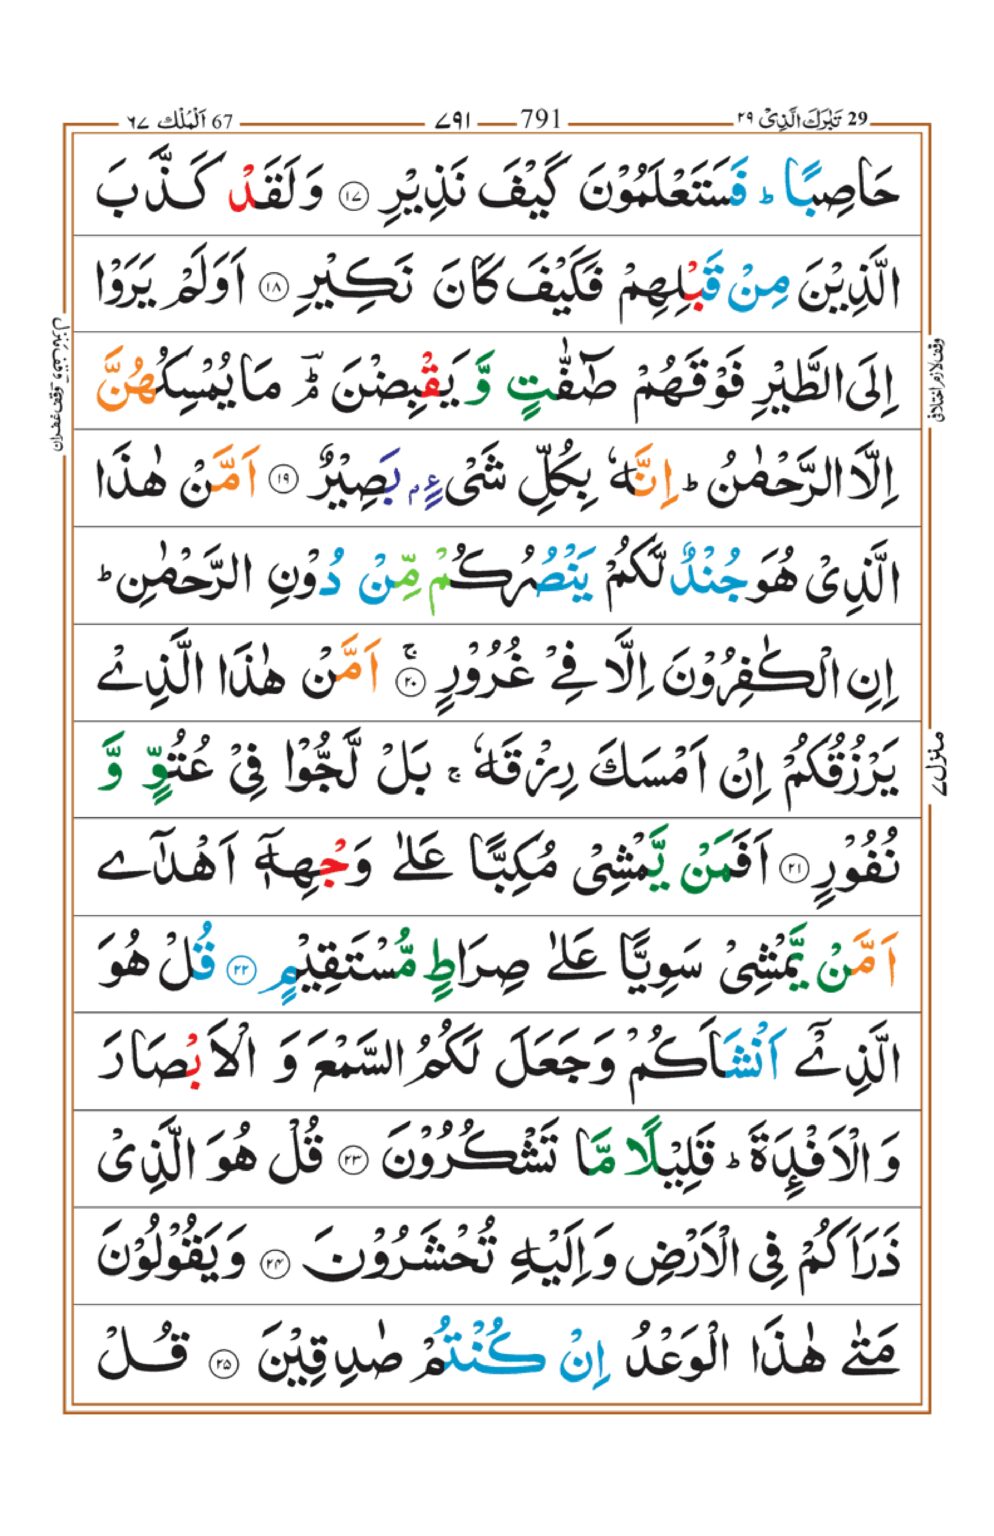 29 تَبٰرَكَ الَّذِیْ ٢٩
791 ٧٩١
67 اَلْمُلْك ٦٧
حَاصِبًا ؕ فَسَتَعْلَمُوْنَ كَیْفَ نَذِیْرِ ۝١٧ وَلَقَدْ كَذَّبَ
الَّذِیْنَ مِنْ قَبْلِهِمْ فَكَیْفَ كَانَ نَكِیْرِ ۝١٨ اَوَلَمْ یَرَوْا
اِلَی الطَّیْرِ فَوْقَهُمْ صٰٓفّٰتٍ وَّیَقْبِضْنَ ؔؕ مَا یُمْسِكُهُنَّ
اِلَّا الرَّحْمٰنُ ؕ اِنَّهٗ بِكُلِّ شَیْءٍۭ بَصِیْرٌ ۝١٩ اَمَّنْ هٰذَا
الَّذِیْ هُوَ جُنْدٌ لَّكُمْ یَنْصُرُكُمْ مِّنْ دُوْنِ الرَّحْمٰنِ ؕ
اِنِ الْكٰفِرُوْنَ اِلَّا فِیْ غُرُوْرٍ ۝٢٠ۚ اَمَّنْ هٰذَا الَّذِیْ
یَرْزُقُكُمْ اِنْ اَمْسَكَ رِزْقَهٗ ۚ بَلْ لَّجُّوْا فِیْ عُتُوٍّ وَّ
نُفُوْرٍ ۝٢١ اَفَمَنْ یَّمْشِیْ مُكِبًّا عَلٰی وَجْهِهٖۤ اَهْدٰۤی
اَمَّنْ یَّمْشِیْ سَوِیًّا عَلٰی صِرَاطٍ مُّسْتَقِیْمٍ ۝٢٢ قُلْ هُوَ
الَّذِیْۤ اَنْشَاَكُمْ وَجَعَلَ لَكُمُ السَّمْعَ وَ الْاَبْصَارَ
وَالْاَفْـِٕدَةَ ؕ قَلِیْلًا مَّا تَشْكُرُوْنَ ۝٢٣ قُلْ هُوَ الَّذِیْ
ذَرَاَكُمْ فِی الْاَرْضِ وَاِلَیْهِ تُحْشَرُوْنَ ۝٢٤ وَیَقُوْلُوْنَ
مَتٰی هٰذَا الْوَعْدُ اِنْ كُنْتُمْ صٰدِقِیْنَ ۝٢٥ قُلْ
وقف لازم اختلافی
منزل ٧
وقف غفران